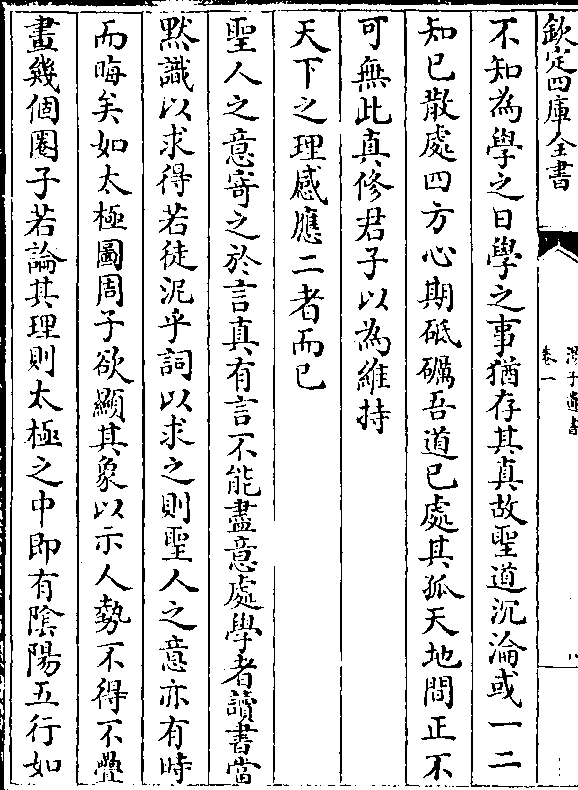 欽定四庫全書
卷一
遺書
不知為學之日學之事猶存其真故聖道沉淪或一二
知已散處四方心期砥礪吾道已處其孤天地間正不
可無此真修君子以為維持
天下之理感應二者而已
聖人之意寄之於言真有言不能盡意處學者讀書當
黙識以求得若徒泥乎詞以求之則聖人之意亦有時
而晦矣如太極圖周子欲顯其象以示人勢不得不疊
畫幾個圏子若論其理則太極之中即有陰陽五行如